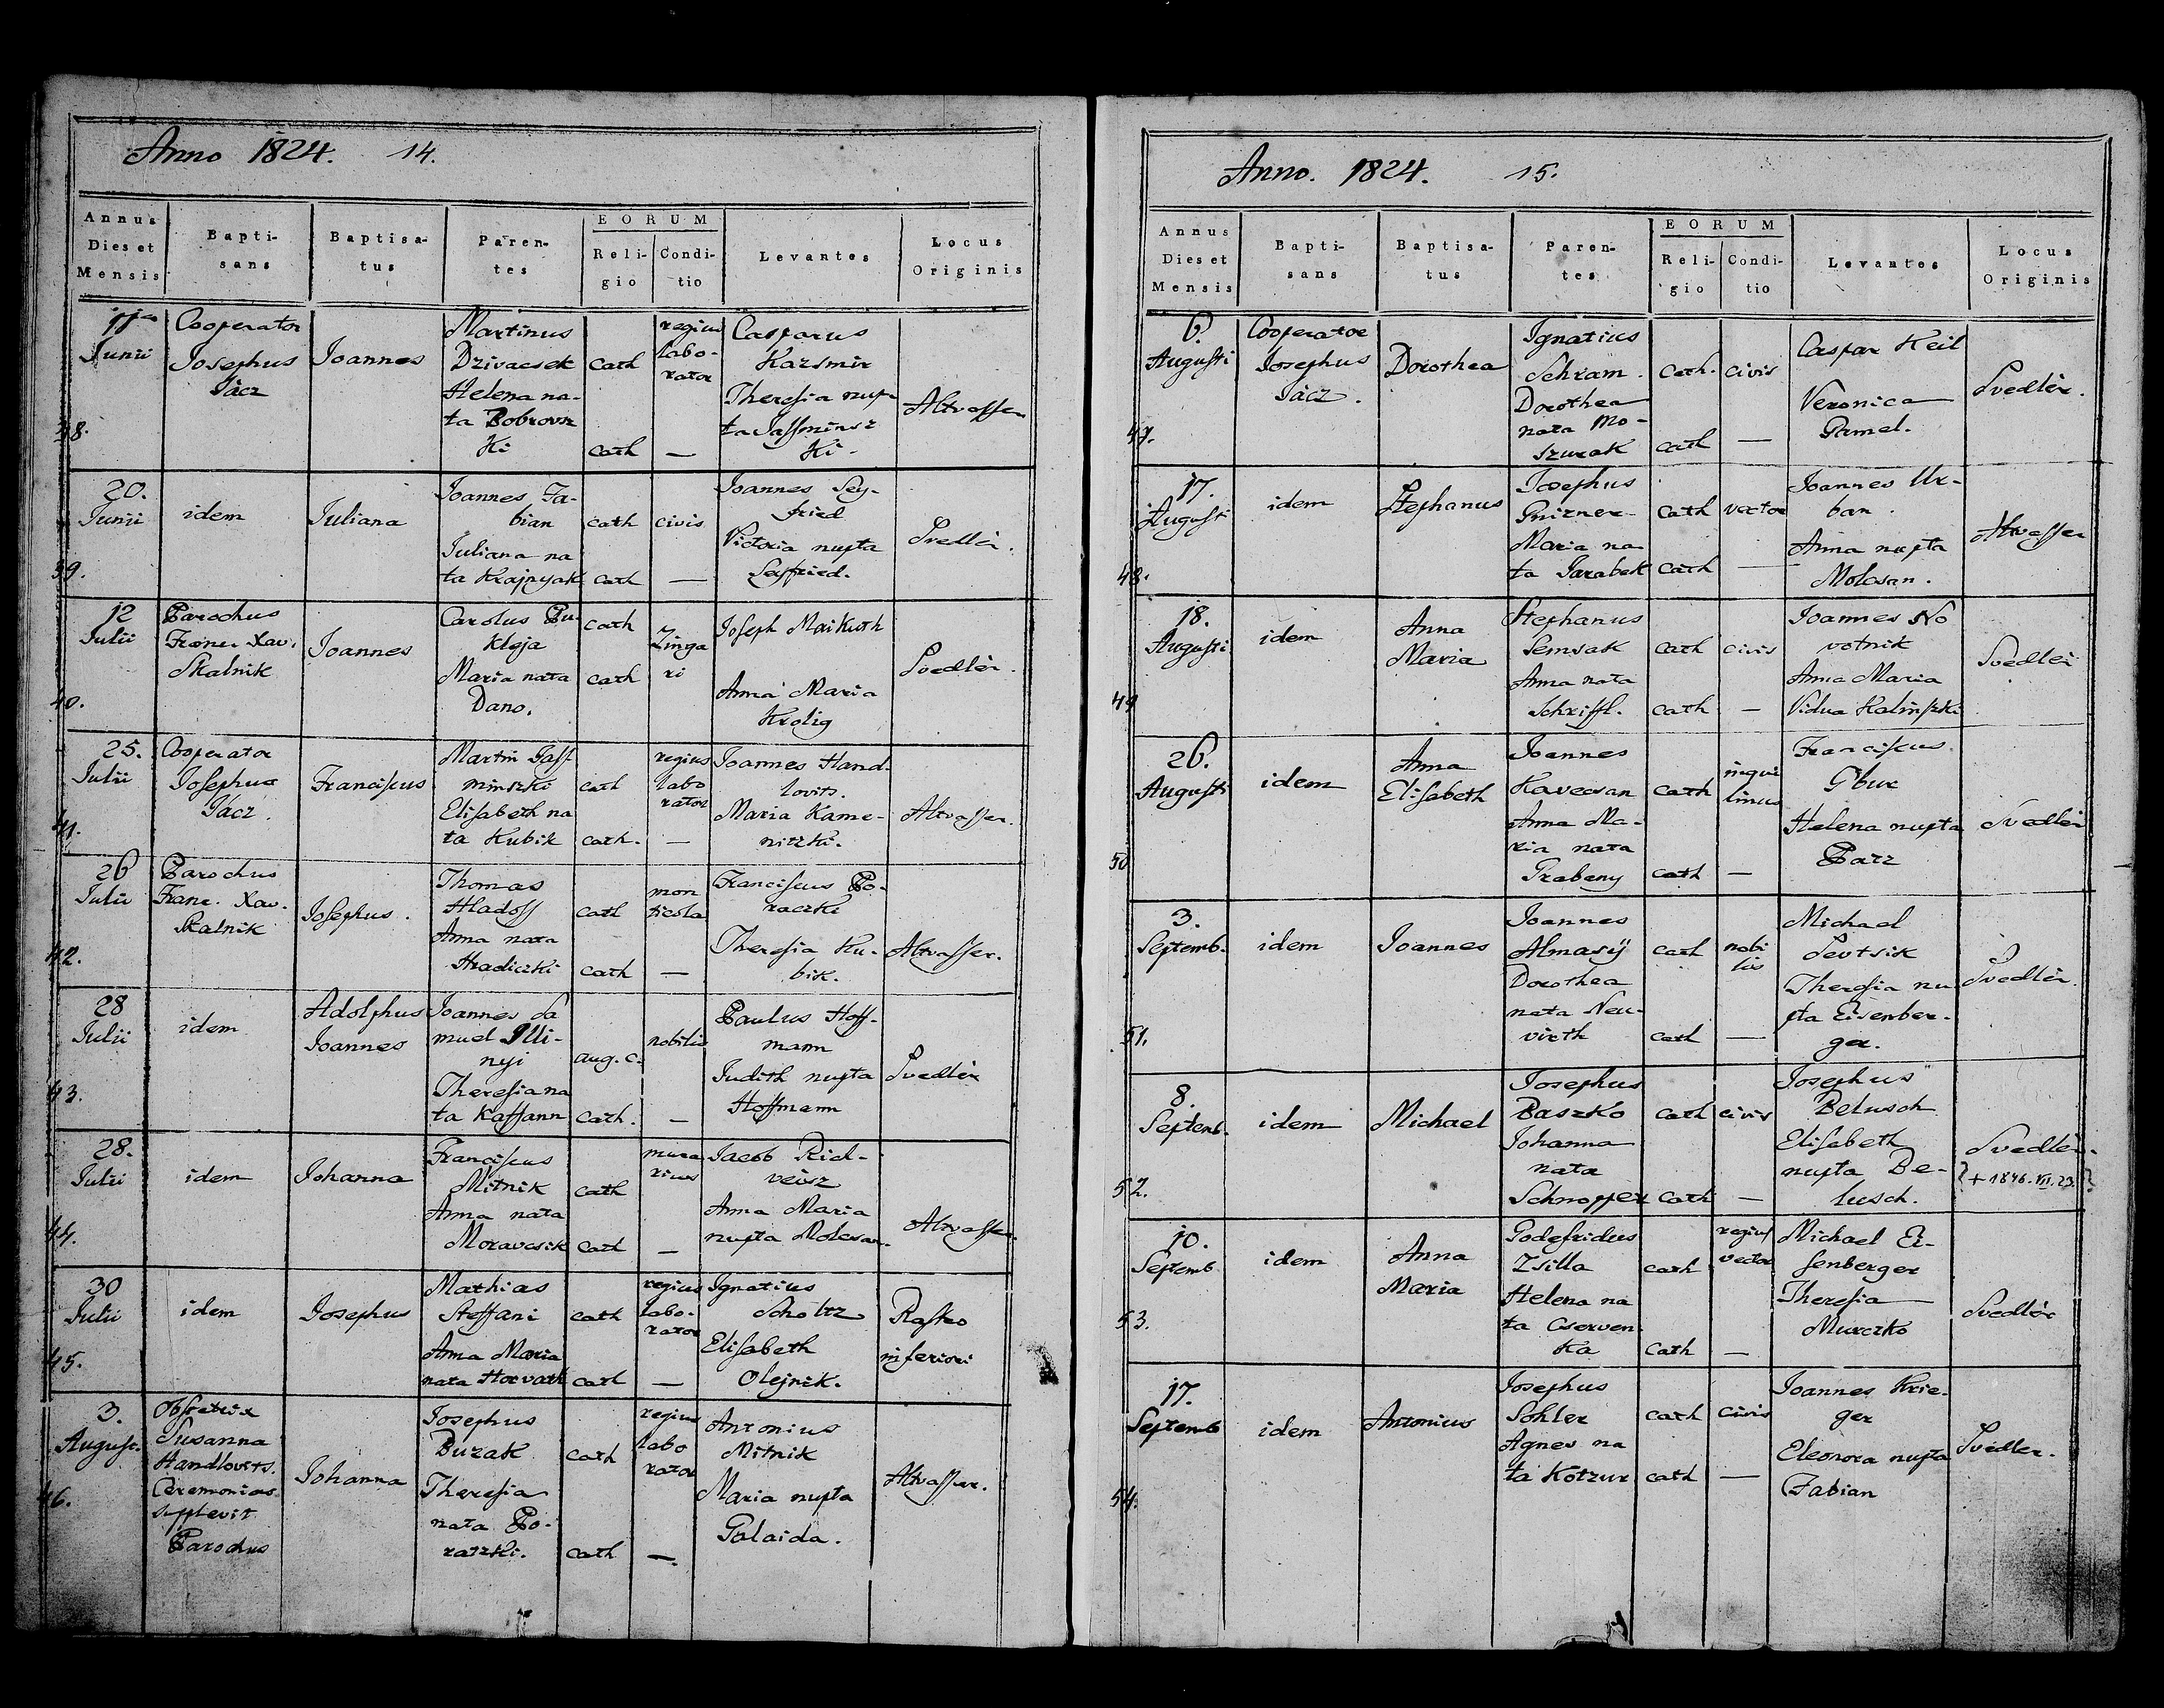 Anno 1824. 14.
Annus Dies et Mensis | Bapti-sans | Baptisa-tus | Paren-tes | EORUM Reli-gio | Condi-tio | Levantes | Locus Originis
38. | 11ma Junii | Cooperator Josephus Jácz | Joannes | Martinus Dzivacsek Helena na-ta Bobrovsz Ki | cath cath | regius labo-rator — | Casparus Kazsmir Theresia nup-ta Jassminsz Ki. | Altvasser
39. | 20. Junii | idem | Juliana | Joannes Fa-bian Juliana na ta Krajnyak | cath cath | civis — | Joannes Sey-fried Victoria nupta Seyfried. | Svedlér.
40. | 12 Julii | Parochus Franc. Xav. Skalnik | Joannes | Carolus Pu-kloja Maria nata Dano. | cath cath | Zinga ri | Joseph Maikuth Anna Maria Krolig | Svedlér.
41. | 25. Julii | Cooperator Josephus Jácz. | Franciscus | Martin Jass minszki Elisabeth na ta Kubik | cath cath. | regius labo rator — | Joannes Hand-lovits. Maria Kame-nitzki. | Altvasser.
42. | 26 Julii | Parochus Franc. Xav. Skalnik | Josephus. | Thomas Hladoss Anna nata Hradiczki | cath cath | mon ticola — | Franciscus Po-raczki Theresia Ku-bik. | Altvasser.
43. | 28 Julii | idem | Adolphus Joannes | Joannes Sa muel Illi-nyi Theresia na ta Kassann | aug. c. cath. | nobilis — | Paulus Hoff-mann Judith nupta Hoffmann | Svedlér
44. | 28. Julii | idem | Johanna | Franciscus Mitnik Anna nata Moravcsik | cath cath | mura rius — | Jacob Rich-veisz Anna Maria nupta Molcsan. | Altvasser.
45. | 30 Julii | idem | Josephus | Mathias Steffani Anna Maria nata Horvath | cath cath | regius labo-rator — | Ignatius Scholtz Elisabeth Olejnik. | inferiori
46. | 3. August. | Obstetrix Susanna Handlovits. Ceremonias supplevit Parochus | Johanna | Josephus Buzak Theresia nata Po-ratzki. | cath cath | regius labo rator —. | Antonius Mitnik Maria nupta Galaida. | Altvasser.
Anno. 1824. 15.
Annus Dies et Mensis | Bapti-sans | Baptisa-tus | Paren-tes | EORUM Reli-gio | Condi-tio | Levantes | Locus Originis
47. | 6. Augusti | Cooperator Josephus Jácz. | Dorothea | Ignatius Schram. Dorothea nata Mo-szurak | cath. cath | civis — | Caspar Keil Veronica Gamel. | Svedlér.
48. | 17. Augusti | idem | Stephanus | Josephus Gnizner Maria na-ta Jarabek | cath cath | vector — | Joannes Ur-ban. Anna nupta Molcsan. | Altvasser
49 | 18. Augusti | idem | Anna Maria | Stephanus Semsak Anna nata Schriffl. | cath cath | civis — | Joannes No votnik Anna Maria Vidua Kalinszki | Svedlér
50 | 26. Augusti | idem | Anna Elisabeth | Joannes Kavecsan Anna Ma-ria nata Grabeny | cath cath | inqui linus — | Franciscus Gbur Helena nupta Patz | Svedlér
51. | 3. Septemb. | idem | Joannes | Joannes Almasÿ Dorothea nata Neu-virth | cath cath | nobi lis — | Michael Sevtsik Theresia nu pta Eisenber-ger. | Svedlér.
52. | 8. Septemb. | idem | Michael | Josephus Baszko Johanna nata Schnopper | cath cath | civis — | Josephus Belusch Elisabeth nupta Be-lusch. | Svedlér. + 1846. VII. 23.
53. | 10. Septemb | idem | Anna Maria | Godefridus Zsilla Helena na ta Cserven Ka | cath cath | regius vector — | Michael Ei-senberger Theresia Murczko | Svedlér
54. | 17. Septemb | idem | Antonius | Josephus Sohler Agnes na ta Kotzur | cath cath | civis — | Joannes Krie-ger Eleonora nupta Fabian | Svedlér.